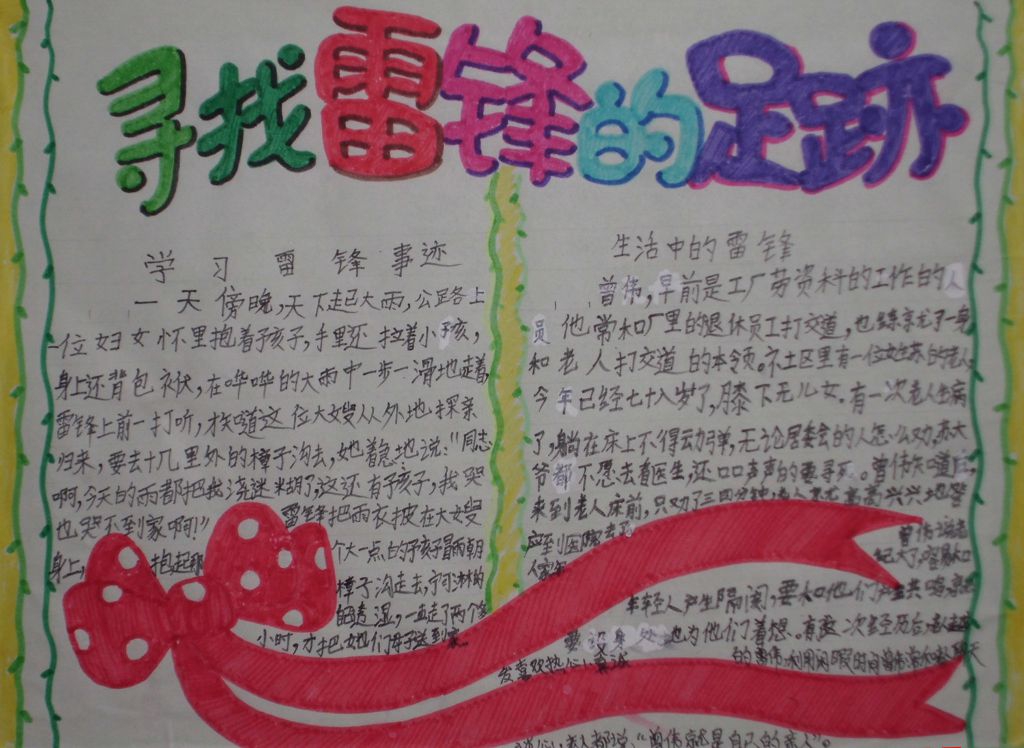 寻找雷锋的足迹
学习雷锋事迹
一天傍晚,天下起大雨,公路上
一位妇女怀里抱着孩子,手里还拉着小孩,
身上还背包袱,在哗哗的大雨中一步一滑地走着
雷锋上前一打听,才知道这位大嫂从外地探亲
归来,要去十几里外的樟子沟去,她着急地说:"周志
啊,今天的雨都把我浇迷糊了,这还有孩子,我哭
也哭不到家啊!"
雷锋把雨衣披在大嫂
身上,抱起那
个大一点的孩子冒雨朝
樟子沟走去,宁可淋的
透湿,一直走了两个多
小时,才把她们母子送到家
生活中的雷锋
曾伟,早前是工厂劳资科的工作的人
员他常和厂里的退休员工打交道,也练就了一身
和老人打交道的本领。社区里有一位姓苏的老人
今年已经七十八岁了,膝下无儿女。有一次老人生病
了,躺在床上不得动弹,无论居委会的人怎么劝,苏大
爷都不愿去看医生,还口口声声的要寻死。曾伟知道后
来到老人床前,只劝了三四分钟,高高兴兴地答
应到医院去了
曾伟说老
人家年
纪大了,容易和
年轻人产生隔阂,要和他们产生共鸣,就
要设身处地为他们着想。有这次经历后,
的曾伟利用闲暇时间常和聊天
发喜欢热心真诚
老人都说:"曾伟就是自己的亲人"。